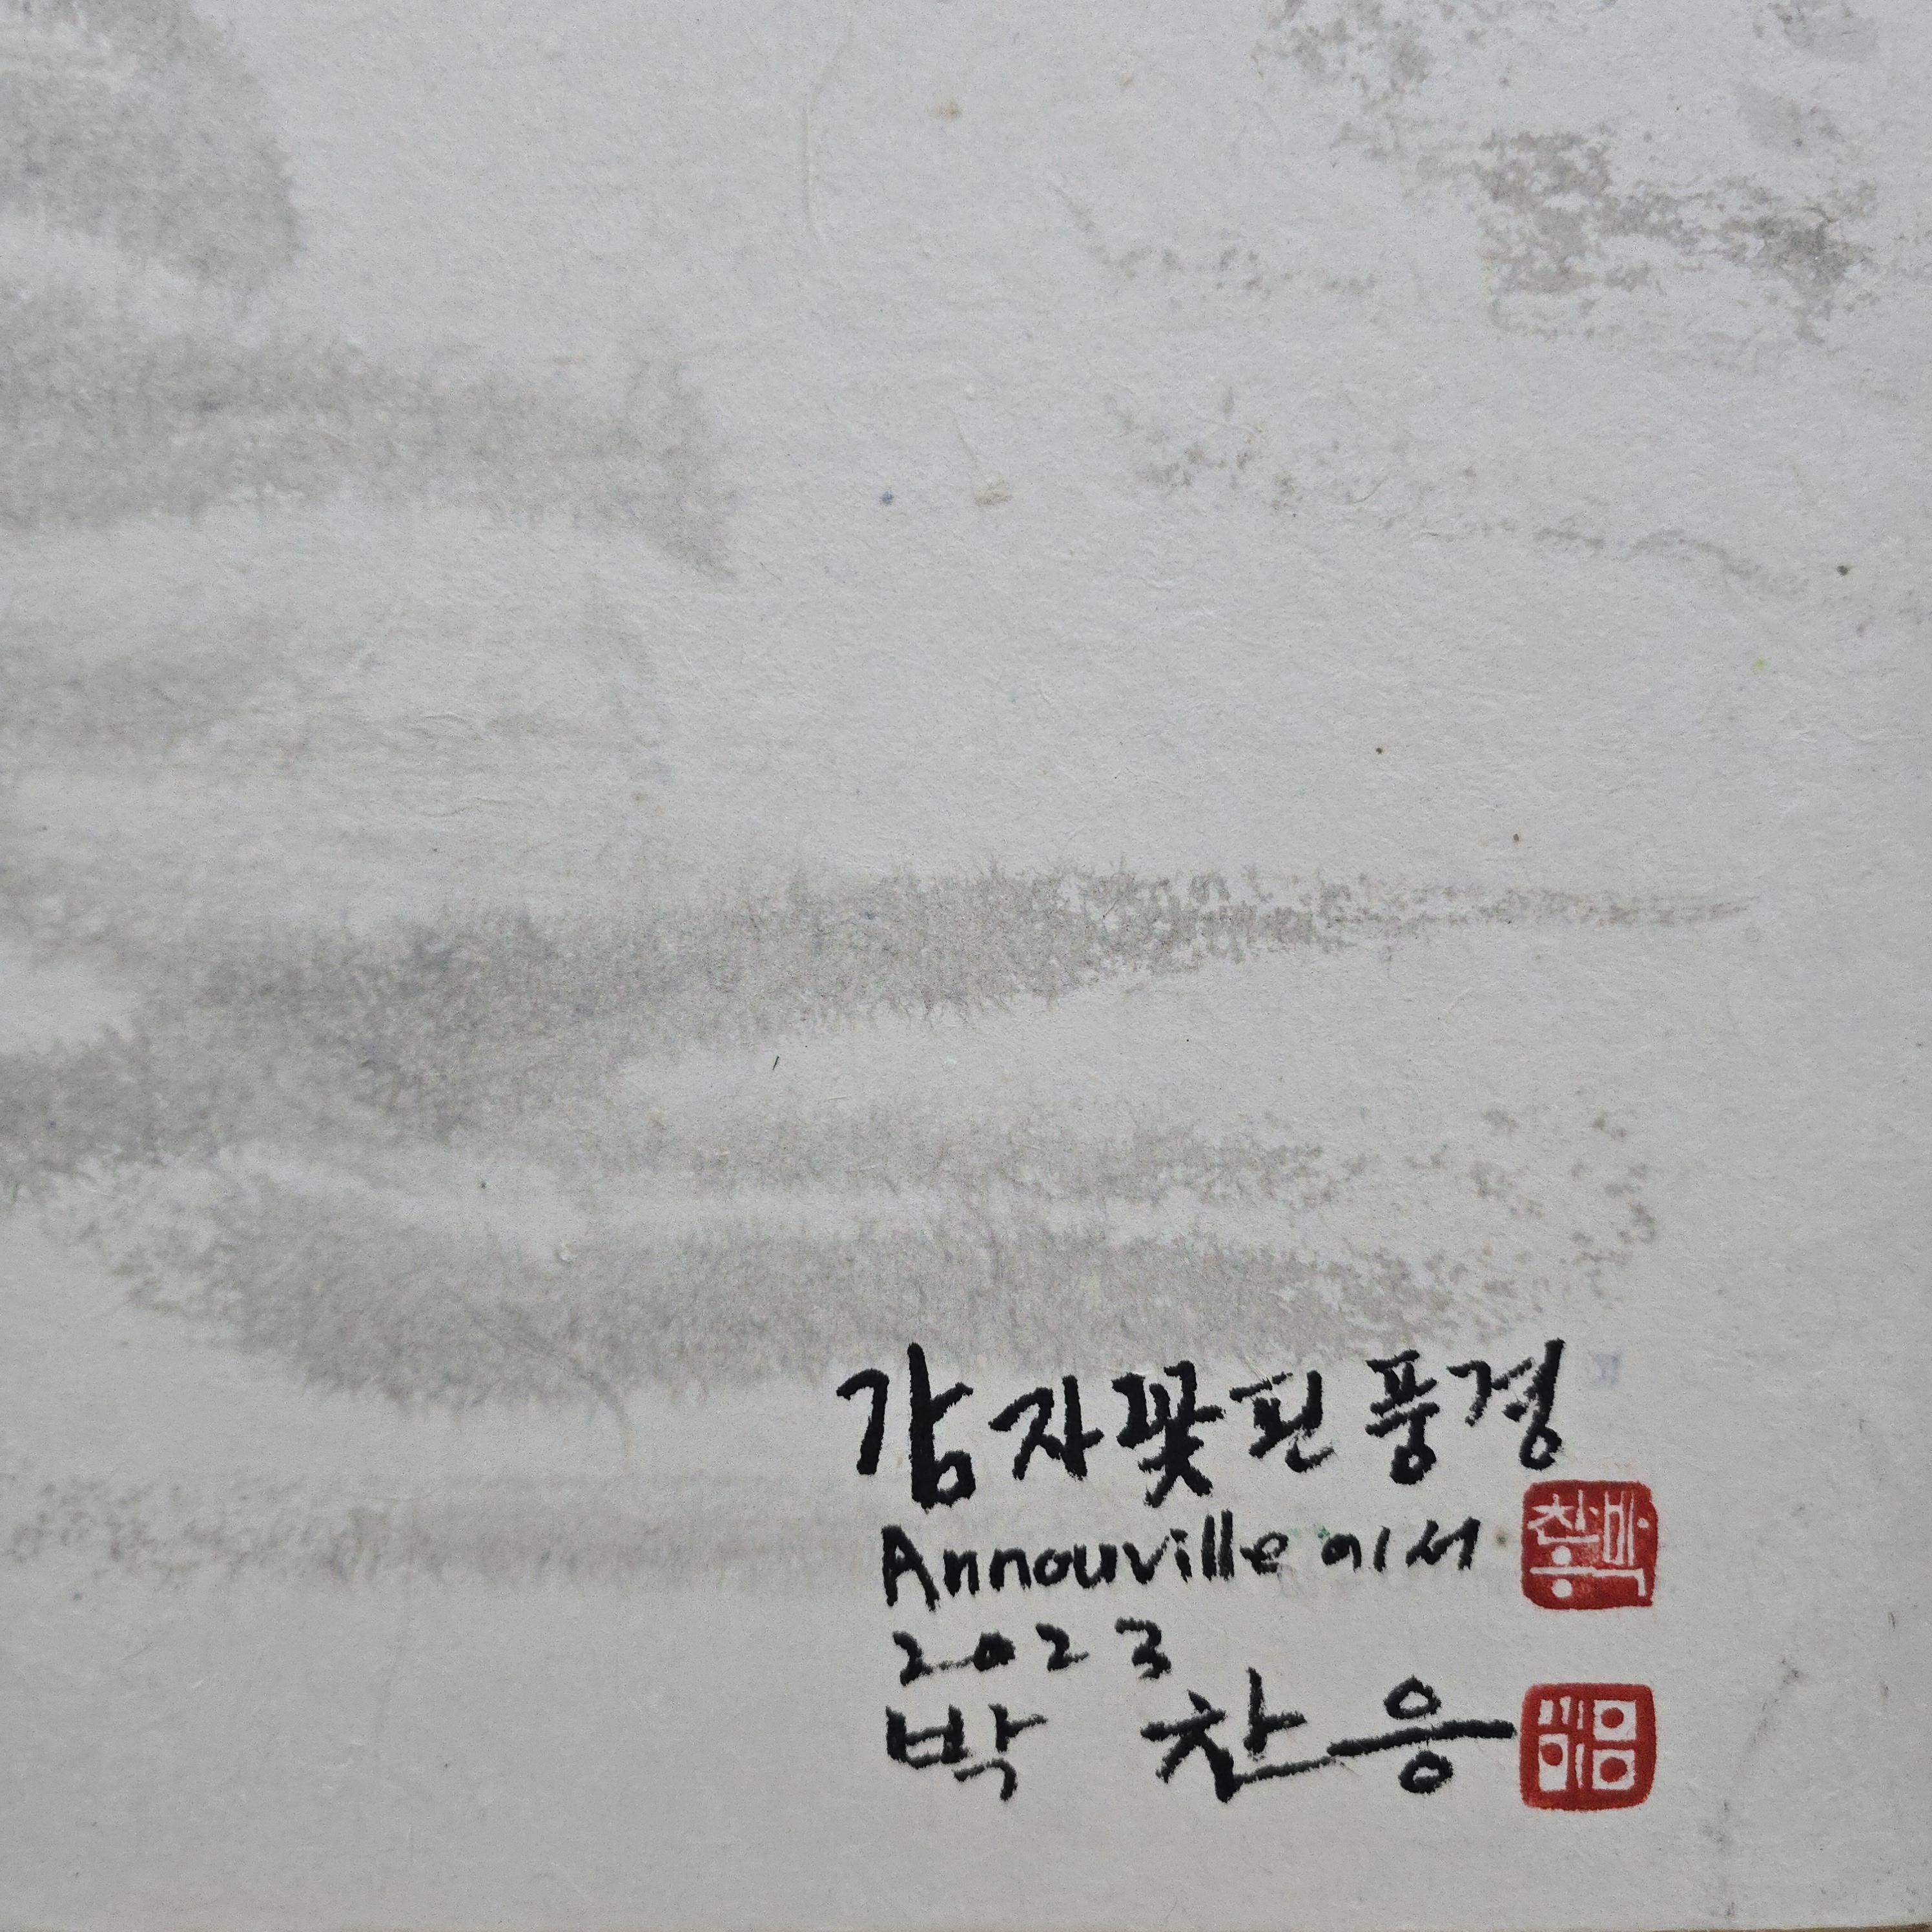 감자꽃핀풍경
Annouville에서
2023
박 찬응
박찬응